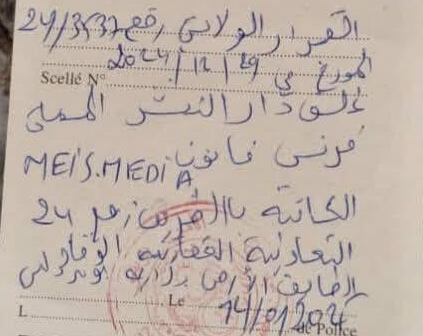 القرار الولائي رقم 24/3537
المؤرخ في 2024/12/29
Scellé N°
غلق دار النشر المسمى
فرنس فانون
MEIS.MEDIA
الكائنة بالفرعية رقم 24
التعاونية العقارية الوفاء
الطابق الأرضي
Le 14/01/202
L de Police